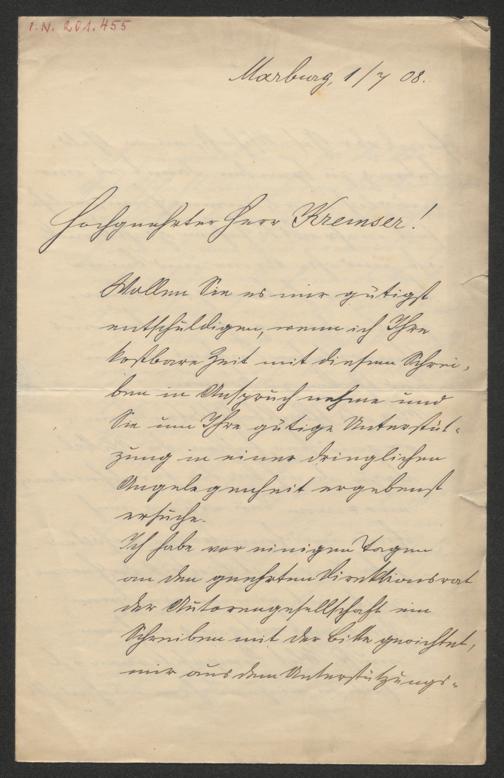 I.N. 201.455
Marburg, 1/7 08.
Hochgeehrter Herr Kremser!
Wollen Sie es mir gütigst
entschuldigen, wenn ich Ihre
kostbare Zeit mit diesem Schrei-
ben in Anspruch nehme und
Sie um Ihre gütige Unterstüt-
zung in einer dringlichen
Angelegenheit ergebenst
ersuche.
Ich habe vor einigen Tagen
an den geehrten Direktionsrat
der Autorengesellschaft ein
Schreiben mit der Bitte gerichtet,
mir aus dem Unterstützungs-